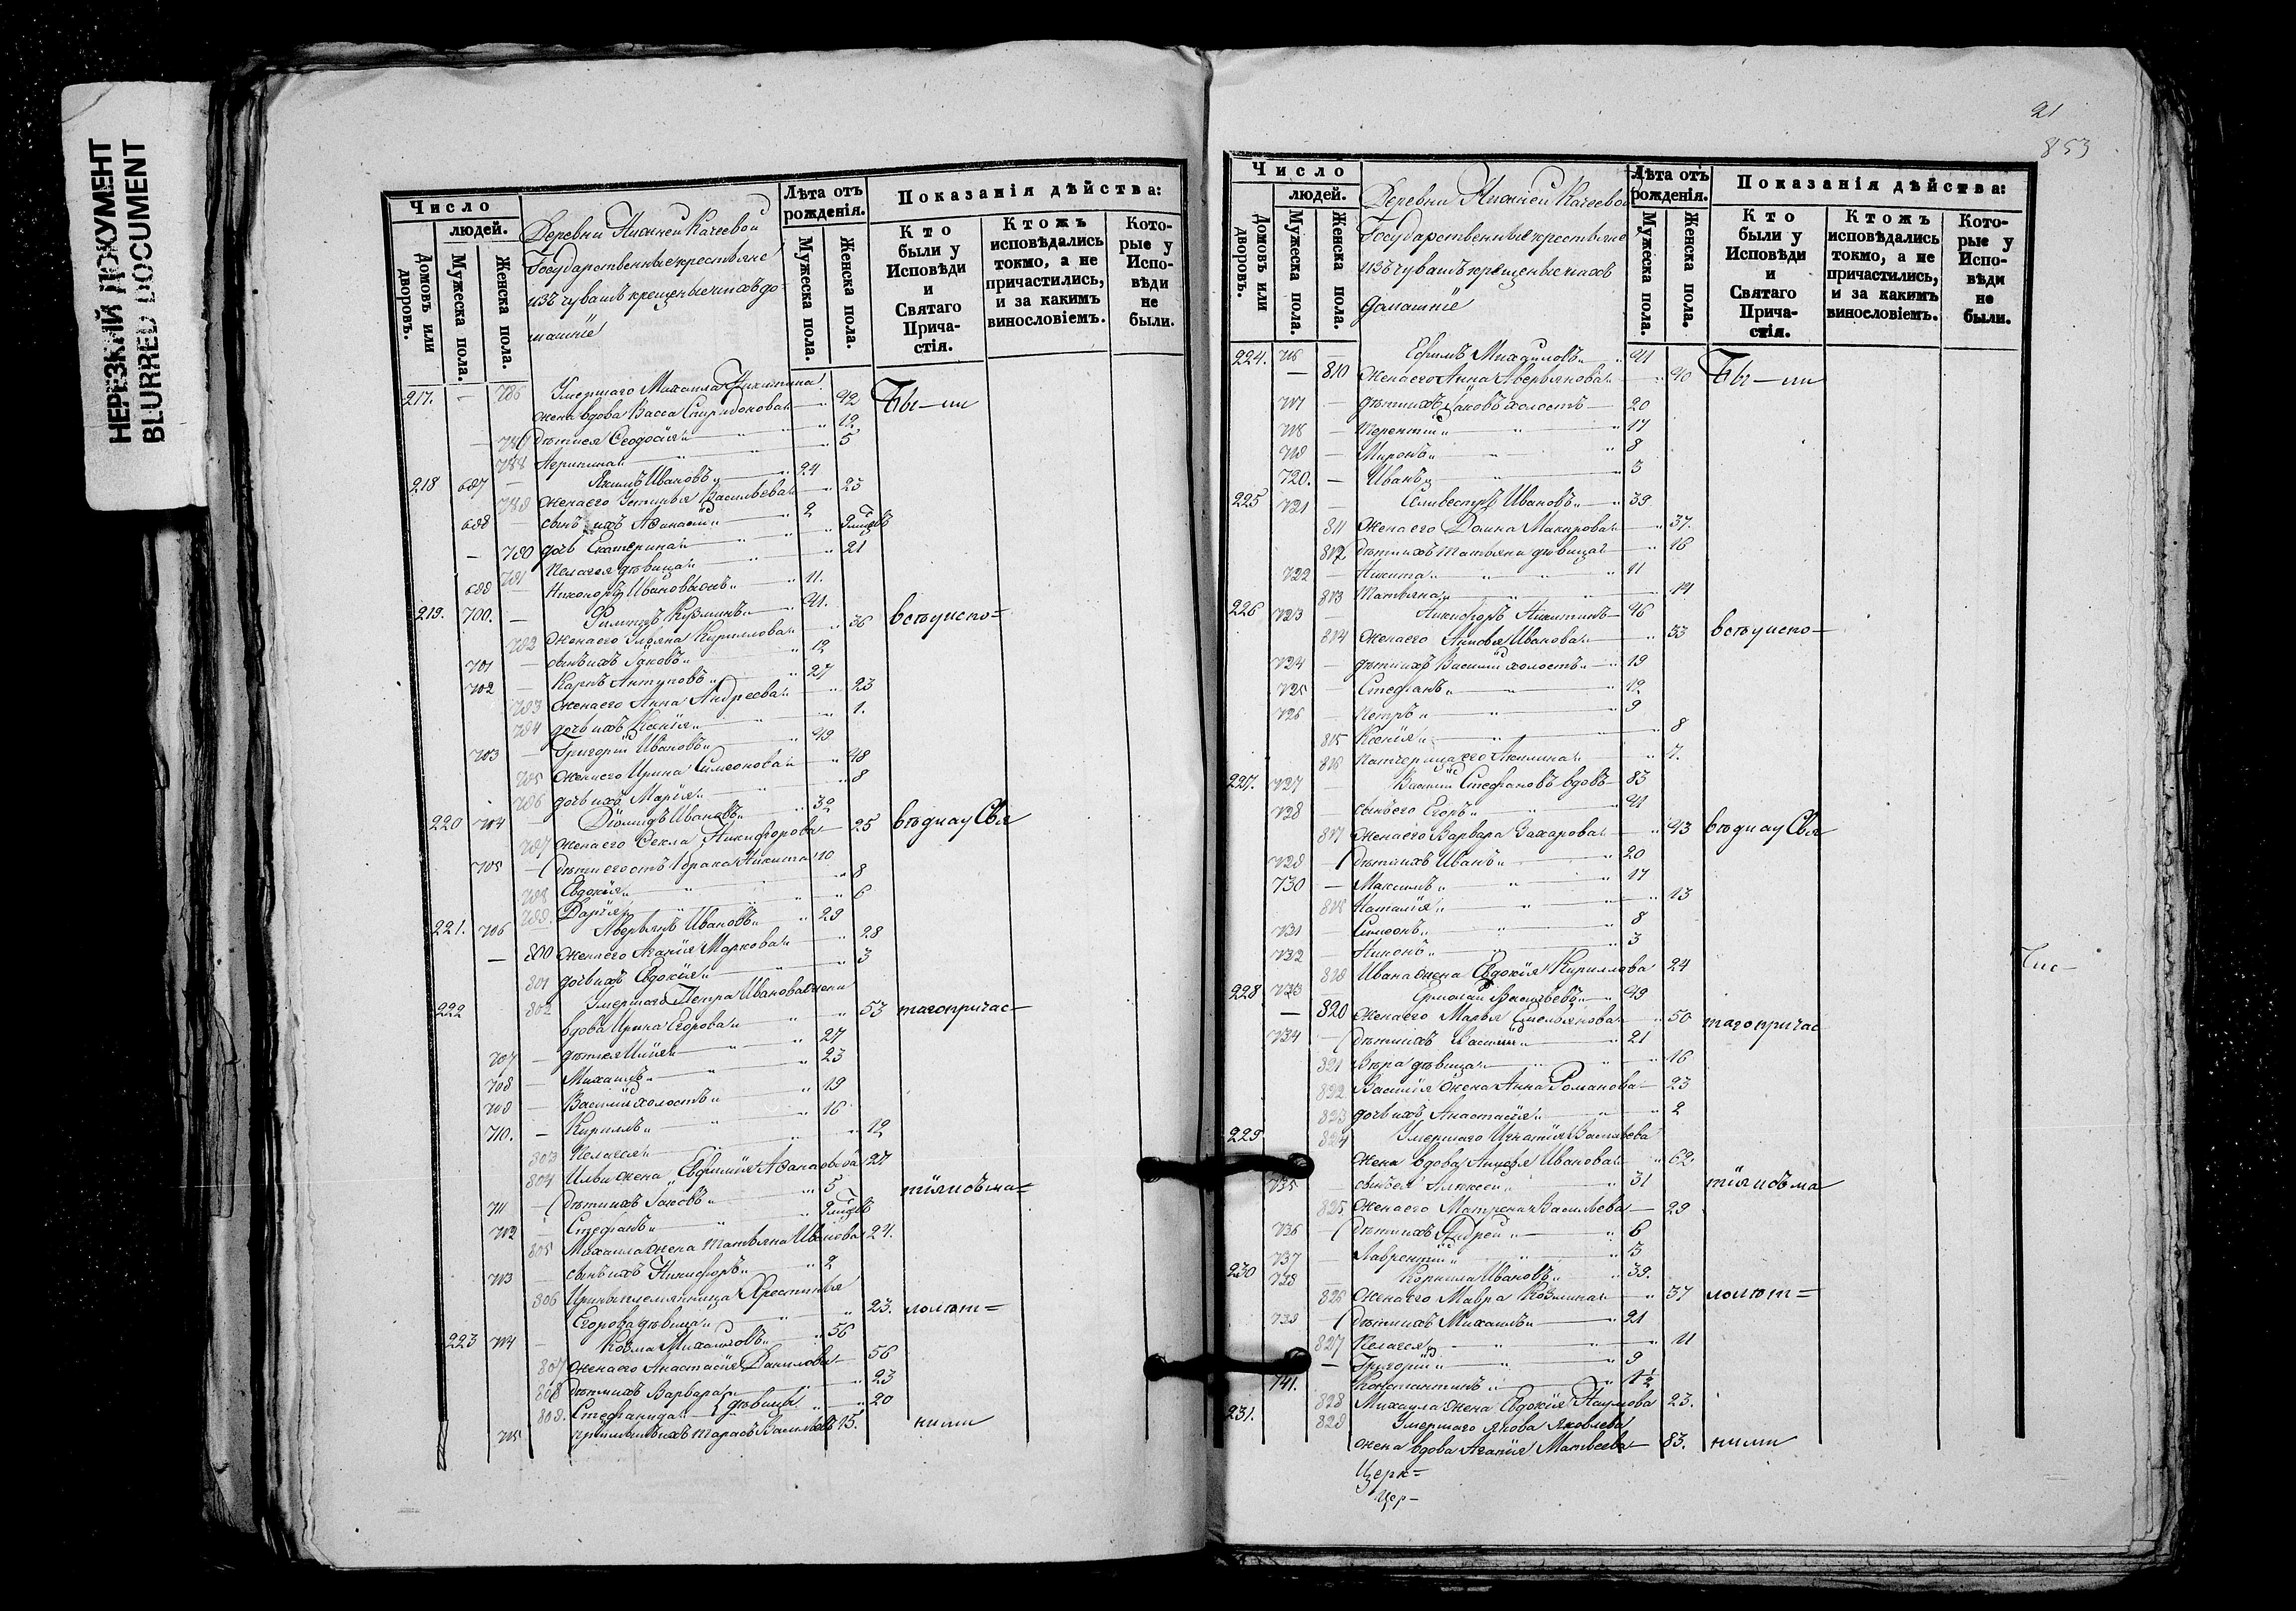 НЕРЕЗКИЙ ДОКУМЕНТ
BLURRED DOCUMENT
Число
людей.
Домовъ или дворовъ.
Мужеска пола.
Женска пола.
Деревни Нижней Качеевой
Государственные крестьяне
изъ чувашъ крещеные и ихъ до-
машніе
Лѣта отъ рожденія.
Мужеска пола.
Женска пола.
Показанія дѣйства:
Кто были у Исповѣди и Святаго Прича-стія.
Ктожъ исповѣдались токмо, а не причастились, и за какимъ винословіемъ.
Кото-рые у Испо-вѣди не были.
217. — 786 Умершаго Михаила Никитина
жена вдова Васса Спиридонова 42 Бы—ли
— 787 дѣти ея Ѳеодосія 12
788 Агрипина 5
218 697 — Якимъ Ивановъ 24
789 жена его Устинья Васильева 23
698 — сынъ ихъ Аѳанасій 2
— 790 дочь Екатерина
791 Пелагея дѣвица 21
699 — Никоноръ Ивановъ 11.
219. 700. — Филипъ Кузминъ 41.
792 жена его Ульяна Кириллова 36 всѣ у испо=
701 — сынъ ихъ Іаковъ 12
702 — Карпъ Антуповъ 27
793 жена его Анна Андреева 23
794 дочь ихъ Ксенія 1.
703 — Григорій Ивановъ 49
795 жена его Ирина Симеонова 48
796 дочь ихъ Марія 8
220 704 — Діомидъ Ивановъ 32
797 жена его Ѳекла Никифорова 25 вѣди и у Свя
705 — дѣти его отъ 1 брака Никита 10
798 Евдокія 8
799. Дарія 6
221. 706 — Аверьянъ Ивановъ 29
— 800 жена его Агафія Маркова 28
801 дочь ихъ Евдокія 3
222 802 Умершаго Петра Иванова жена
вдова Ирина Егорова 53 таго причас—
707 — дѣти ея Илія 27
708 — Михаилъ 23
709 — Василій холостъ 19
710. — Кириллъ 16
803 Пелагея 12
804 Ильи жена Евфимія Аѳанасьева 27
711 — дѣти ихъ Іаковъ 5 тія и съ ма=
712 — Стефанъ
805 Михаила жена Татьяна Иванова 24.
713 — сынъ ихъ Никифоръ 2
806 Ирины племянница Хрестинья
Егорова дѣвица 23. лолѣт=
223 714 — Козма Михайловъ 56
807 жена его Анастасія Данилова 56
808 дѣти ихъ Варвара 23
809. Стефанида } дѣвицы 20
715 Тарасъ Васильевъ 15. ними
21
853
Число
людей.
Домовъ или дворовъ.
Мужеска пола.
Женска пола.
Деревни Нижней Качеевой
Государственные крестьяне
изъ чувашъ крещеные и ихъ
домашніе
Лѣта отъ рожденія.
Мужеска пола.
Женска пола.
Показанія дѣйства:
Кто были у Исповѣди и Святаго Прича-стія.
Ктожъ исповѣдались токмо, а не причастились, и за какимъ винословіемъ.
Кото-рые у Испо-вѣди не были.
224. 716 — Ефимъ Михайловъ 41
— 810 жена его Анна Аверьянова 40 Бы—ли
717 — дѣти ихъ Іаковъ холостъ 20
718 — Терентій 17
719 — Миронъ 8
720. — Иванъ 5
225 721 — Селивестръ Ивановъ 39
811 жена его Домна Макарова 37.
812 дѣти ихъ Татьяна дѣвица 16
722 — Никита 11
813 Татьяна 14
226 723 — Никифоръ Никитинъ 46
814 жена его Анисья Иванова 53 всѣ у испо—
724 — дѣти ихъ Василій холостъ 19
725 — Стефанъ 12
726 — Петръ 9
815 Ксенія 8
816 Падчерица его Акилина 7.
227. 727 — Василій Стефановъ вдовъ 83
728 сынъ его Егоръ 41
817 жена его Варвара Захарова 43 вѣди и у Свя
729 — дѣти ихъ Иванъ 20
730 — Максимъ 17
818 Наталія 13
731 — Симеонъ 8
732 — Никонъ 3
819 Ивана жена Евдокія Кириллова 24
228 733 — Ермолай Васильевъ 49
— 820 жена его Марья Емельянова 50 таго причас
734 — дѣти ихъ Василій 21
821 Вѣра дѣвица 16
822 Василія жена Анна Романова 23
823 дочь ихъ Анастасія 2
229 824 Умершаго Игнатія Васильева
жена вдова Анисья Иванова 62
735 — сынъ ея Алексей 31 тія и съ ма
825 жена его Матрена Васильева 29
736 — дѣти ихъ Андрей 6
737 — Лаврентій 3
230 738 — Корнила Ивановъ 39.
826 жена его Мавра Козмина 37 лолѣт=
739 — дѣти ихъ Михаилъ 21
827 Пелагея 11
— Григорій 9
741. Константинъ 1½
828 Михаила жена Евдокія Наумова 23.
231. 829 Умершаго Якова Яковлева
жена вдова Агафія Матвеева 83. ними
Церк=
Цер—